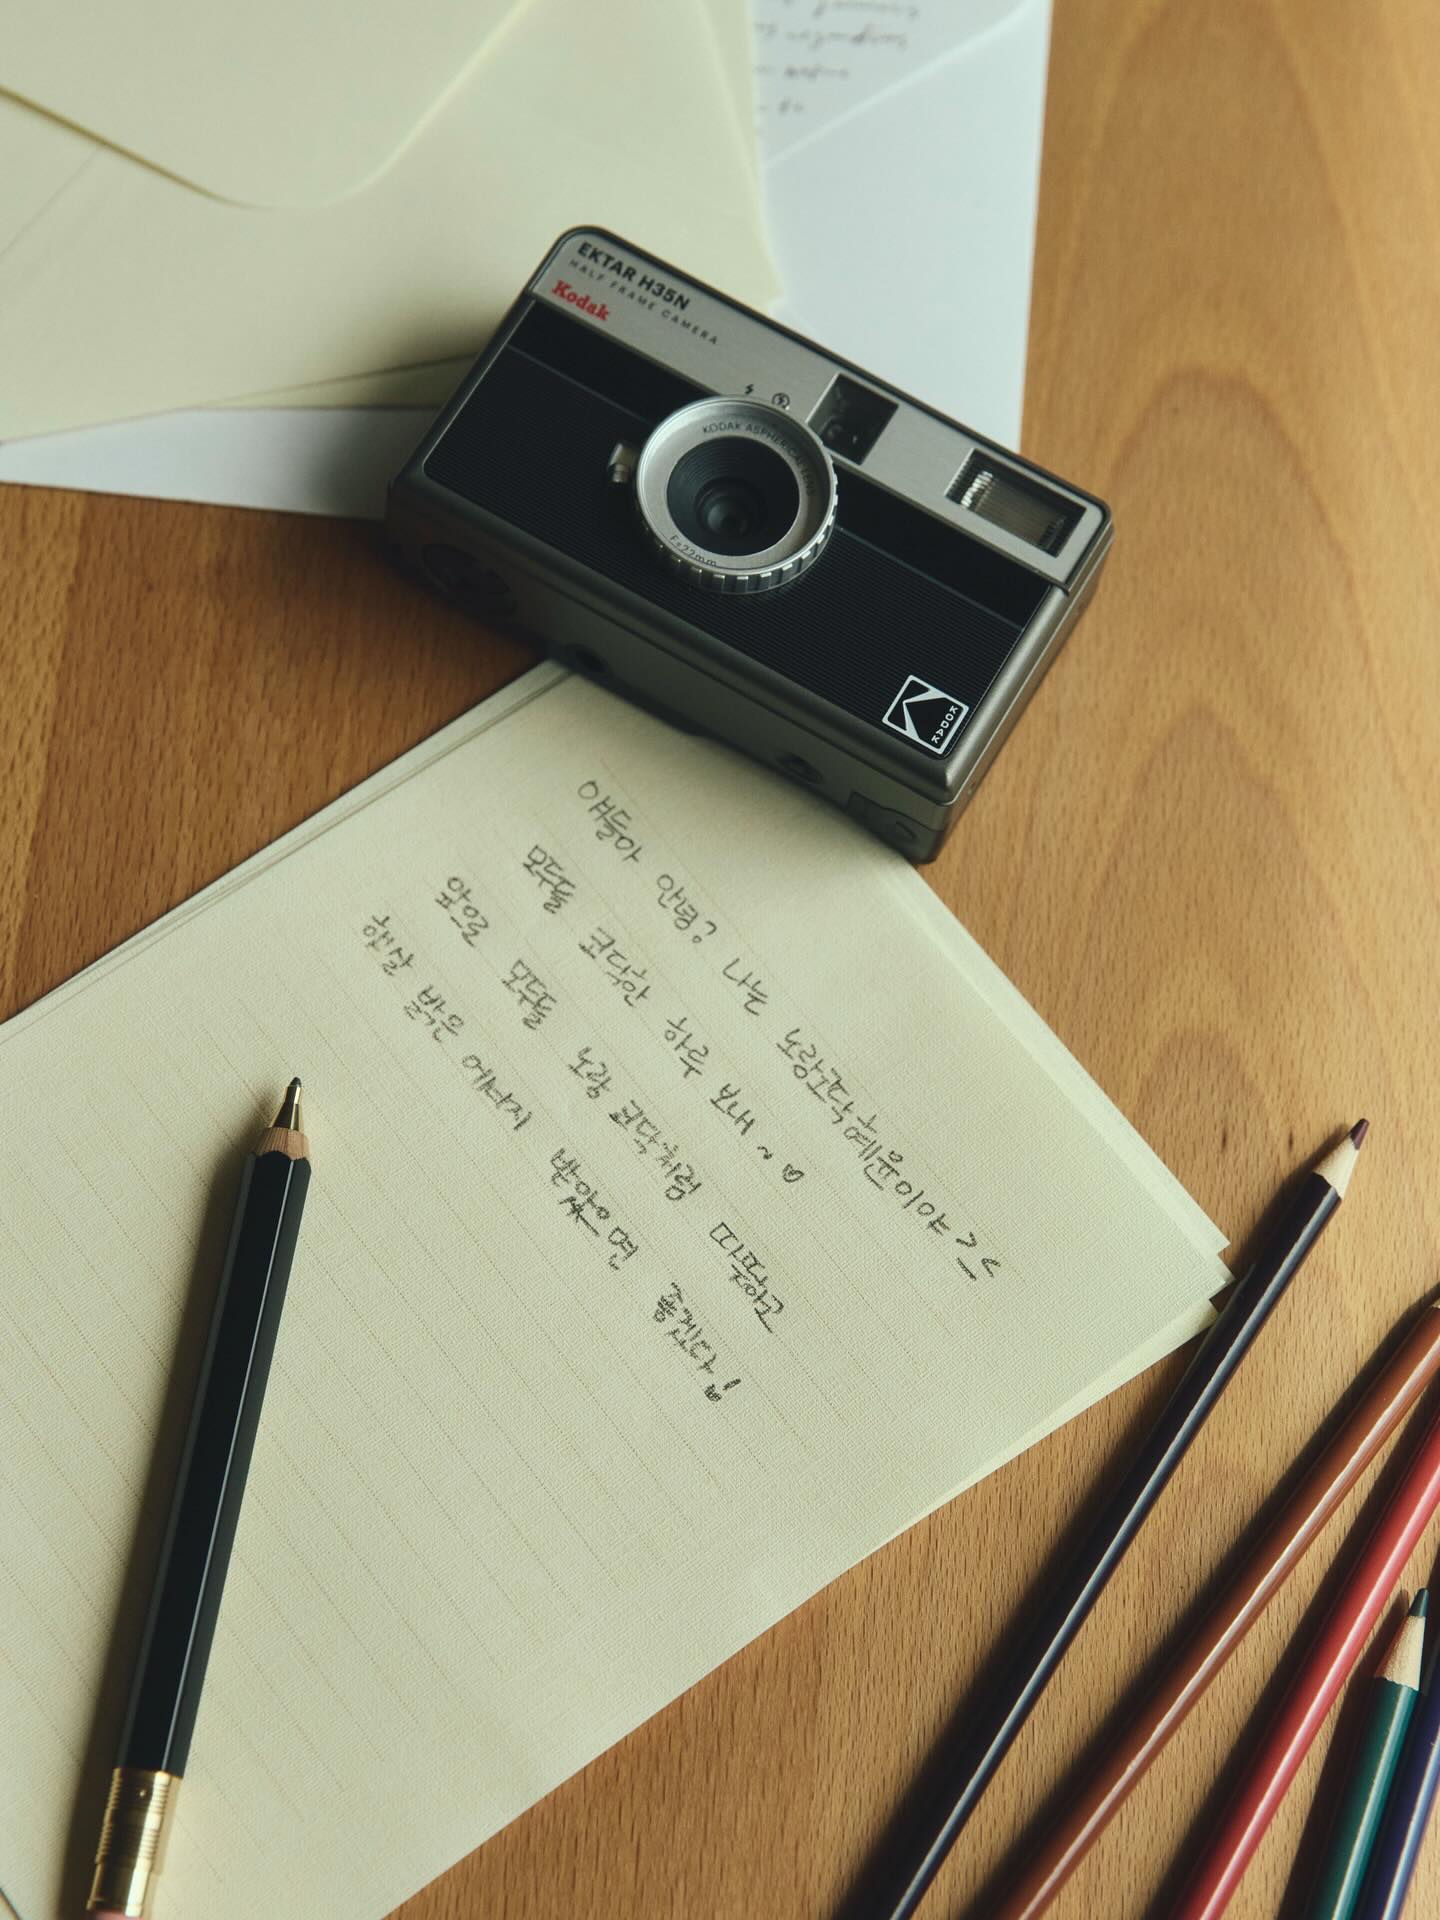 EKTAR H35N
HALF FRAME CAMERA
Kodak
KODAK ASPHERICAL LENS
F=22mm
KODAK
얘들아 안녕? 나는 >_<
모두들 코닥한 하루 보내~♡
모두들 노랑 코닥처럼
햇살 밝은 에너지 받았으면 좋겠다!